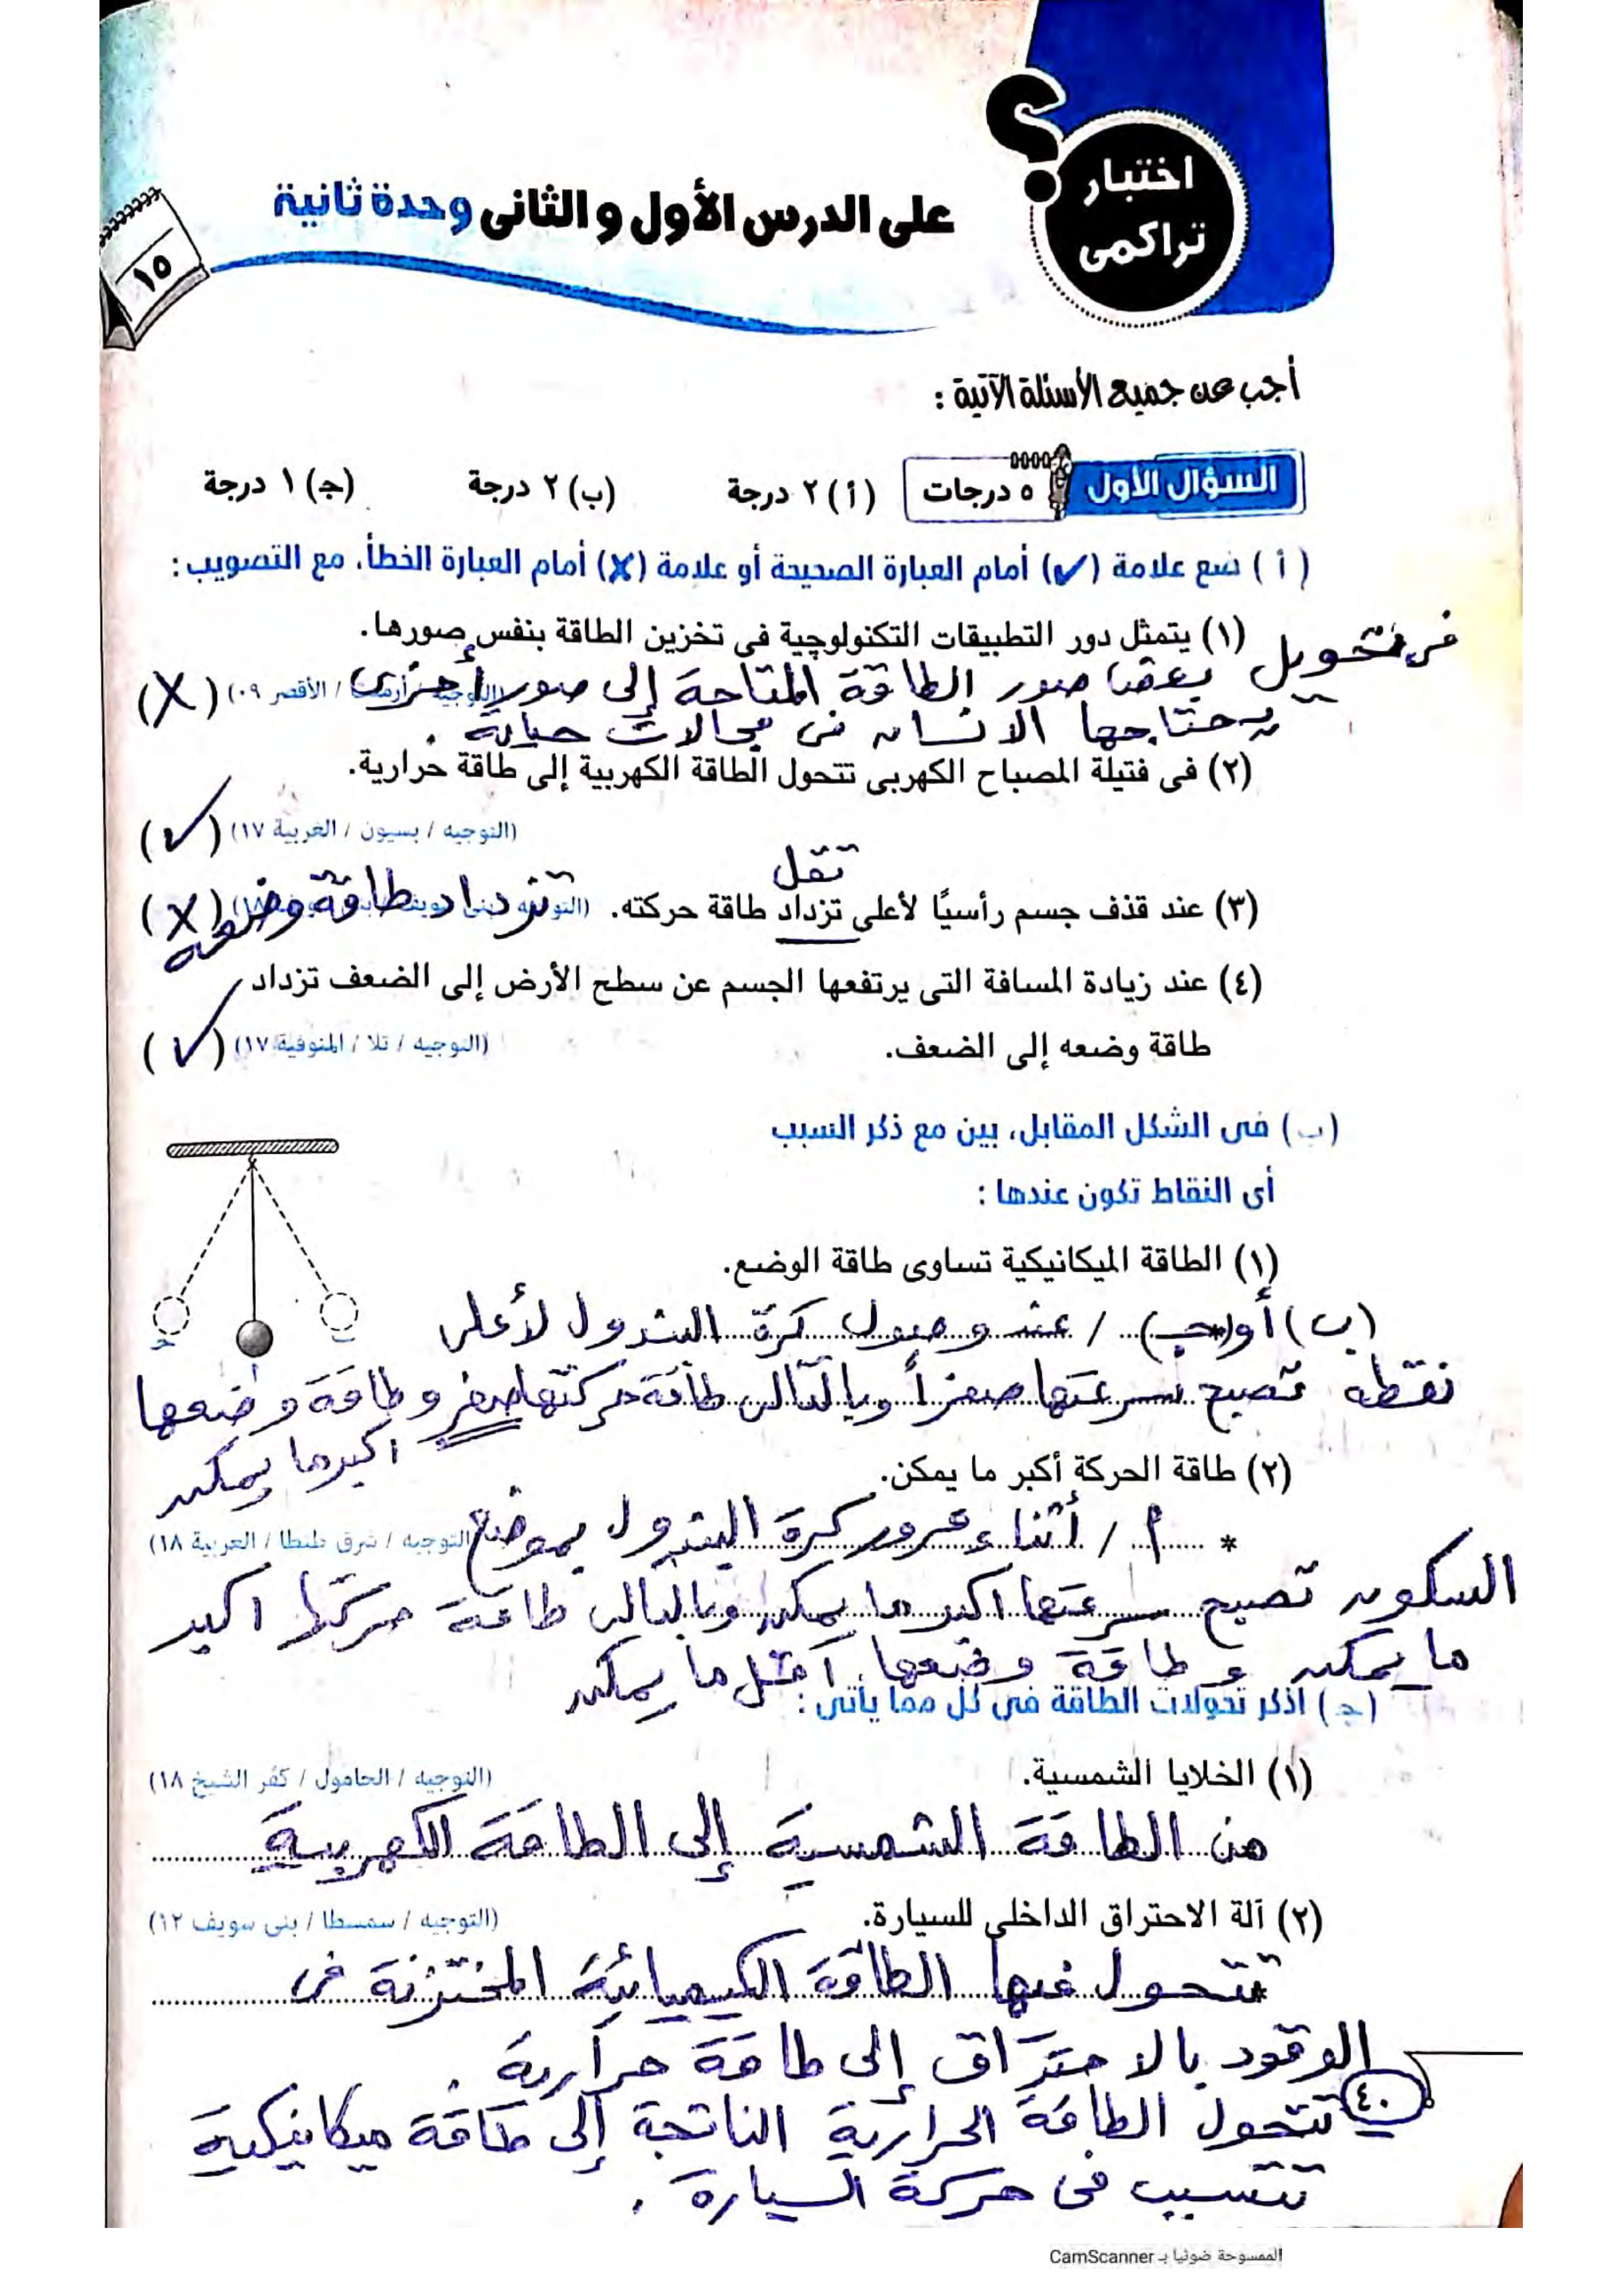 اختبار
تراكمى
على الدرس الأول و الثانى وحدة ثانية
١٥
أجب عن جميع الأسئلة الآتية :
السؤال الأول ٥ درجات (أ) ٢ درجة (ب) ٢ درجة (جـ) ١ درجة
(أ) ضع علامة (✓) أمام العبارة الصحيحة أو علامة (✗) أمام العبارة الخطأ، مع التصويب :
(١) يتمثل دور التطبيقات التكنولوجية فى تخزين الطاقة بنفس صورها.
فى تحويل بعض صور الطاقة المتاحة إلى صور أخرى
/ الأقصر ٠٩) (X)
يحتاجها الانسان فى مجالات حياته .
(٢) فى فتيلة المصباح الكهربى تتحول الطاقة الكهربية إلى طاقة حرارية.
(التوجيه / بسيون / الغربية ١٧) (✓)
تقل
(٣) عند قذف جسم رأسيًا لأعلى تزداد طاقة حركته. تزداد طاقة وضعه (X)
(٤) عند زيادة المسافة التى يرتفعها الجسم عن سطح الأرض إلى الضعف تزداد
طاقة وضعه إلى الضعف. (التوجيه / تلا / المنوفية ١٧) (✓)
(ب) فى الشكل المقابل، بين مع ذكر السبب
أى النقاط تكون عندها :
(١) الطاقة الميكانيكية تساوى طاقة الوضع.
(ب) أو (جـ) / عند وصول كرة البندول لأعلى
نقطه تصبح سرعتها صفراً وبالتالى طاقة حركتها صفر و طاقة وضعها
اكبر ما يمكن
(٢) طاقة الحركة أكبر ما يمكن.
* أ / أثناء مرور كرة البندول بموضع
التوجيه / شرق طنطا / الغربية ١٨)
السكون تصبح سرعتها اكبر ما يمكن وبالتالى طاقة حركتها اكبر
ما يمكن و طاقة وضعها أقل ما يمكن
(جـ) اذكر تحولات الطاقة فى كل مما يأتى :
(١) الخلايا الشمسية. (التوجيه / الحامول / كفر الشيخ ١٨)
من الطاقة الشمسية إلى الطاقة الكهربية
(٢) آلة الاحتراق الداخلى للسيارة. (التوجيه / سمسطا / بنى سويف ١٢)
* تتحول فيها الطاقة الكيميائية المختزنة فى
الوقود بالاحتراق إلى طاقة حرارية .
٤٠
تتحول الطاقة الحرارية الناتجة إلى طاقة ميكانيكية
تتسبب فى حركة السيارة .
الممسوحة ضوئيا بـ CamScanner